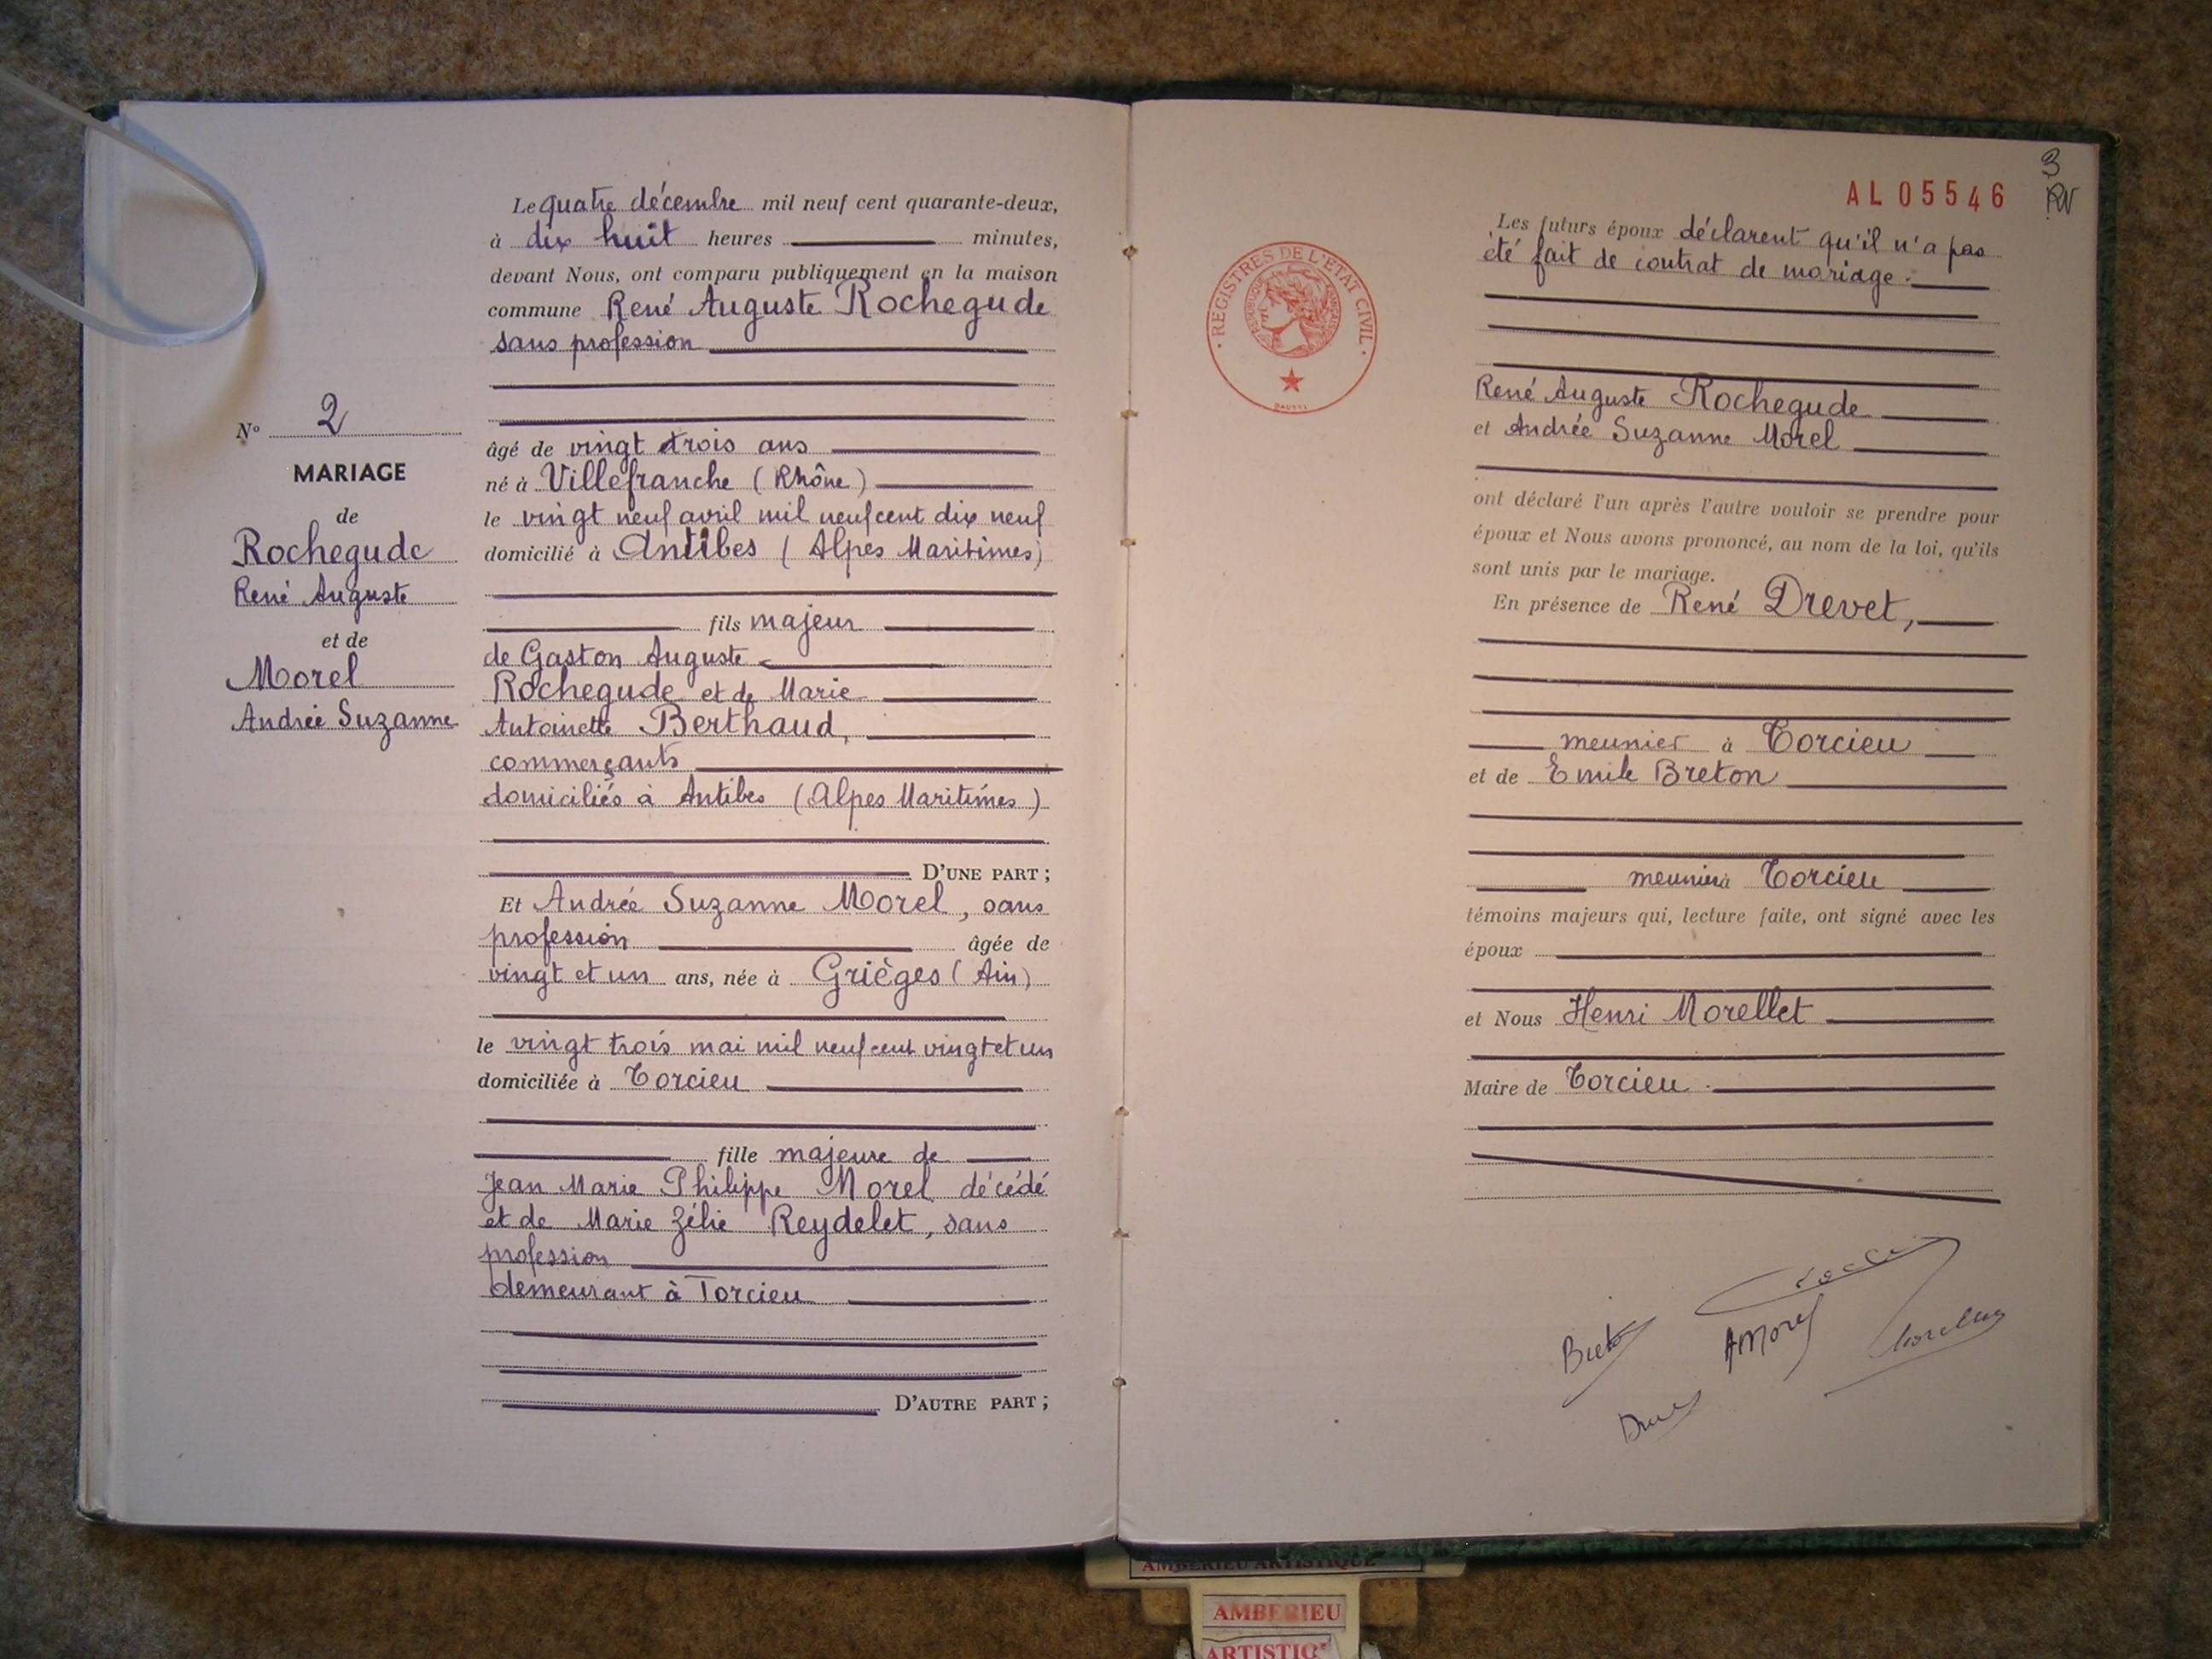 N° 2
MARIAGE
de
Rochegude
René Auguste
et de
Morel
Andrée Suzanne
Le quatre décembre mil neuf cent quarante-deux,
à dix huit heures minutes,
devant Nous, ont comparu publiquement en la maison
commune René Auguste Rochegude
sans profession
âgé de vingt trois ans
né à Villefranche (Rhône)
le vingt neuf avril mil neuf cent dix neuf
domicilié à Antibes (Alpes Maritimes)
fils majeur
de Gaston Auguste
Rochegude et de Marie
Antoinette Berthaud,
commerçants
domiciliés à Antibes (Alpes Maritimes)
D'UNE PART ;
Et Andrée Suzanne Morel, sans
profession âgée de
vingt et un ans, née à Grièges (Ain)
le vingt trois mai mil neuf cent vingt et un
domiciliée à Torcieu
fille majeure de
Jean Marie Philippe Morel décédé
et de Marie Zélie Reydelet, sans
profession
demeurant à Torcieu
D'AUTRE PART ;
3
RN
AL 05546
REGISTRES DE L'ETAT CIVIL
REPUBLIQUE FRANÇAISE
Les futurs époux déclarent qu'il n'a pas
été fait de contrat de mariage.
René Auguste Rochegude
et Andrée Suzanne Morel
ont déclaré l'un après l'autre vouloir se prendre pour
époux et Nous avons prononcé, au nom de la loi, qu'ils
sont unis par le mariage.
En présence de René Drevet,
meunier à Torcieu
et de Emile Breton
meunier à Torcieu
témoins majeurs qui, lecture faite, ont signé avec les
époux
et Nous Henri Morellet
Maire de Torcieu.
AMorel
AMBERIEU ARTISTIQUE
AMBERIEU
ARTISTIQ